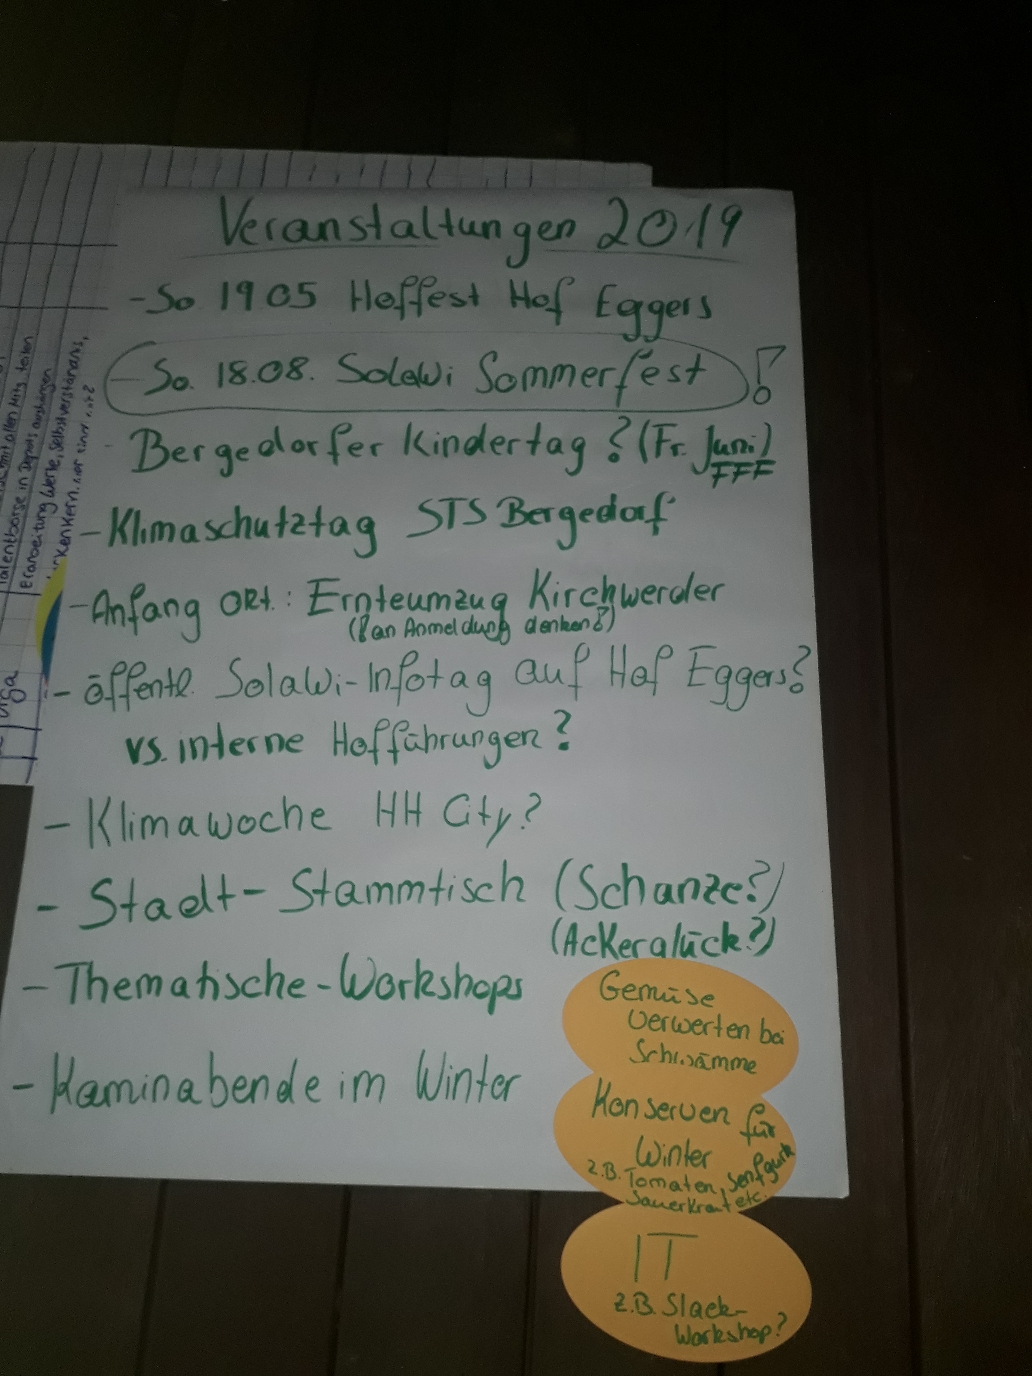 Veranstaltungen 2019
- So 19.05 Hoffest Hof Eggers
- So. 18.08. Solawi Sommerfest !
- Bergedorfer Kindertag? (Fr. Juni)
FFF
- Klimaschutztag STS Bergedorf
- Anfang Okt.: Ernteumzug Kirchwerder
(an Anmeldung denken!)
- öffentl. Solawi-Infotag auf Hof Eggers?
vs. interne Hofführungen?
- Klimawoche HH City?
- Stadt-Stammtisch (Schanze?)
(Ackerglück?)
- Thematische-Workshops
- Kaminabende im Winter
Gemüse
verwerten bei
Schwämme
Konserven für
Winter
z.B. Tomaten, Senfgurk
Sauerkraut etc.
IT
z.B. Slack-
Workshop?
Talentbörse in Depots aushängen
Erarbeitung Werte, Selbstverständnis,
Orga